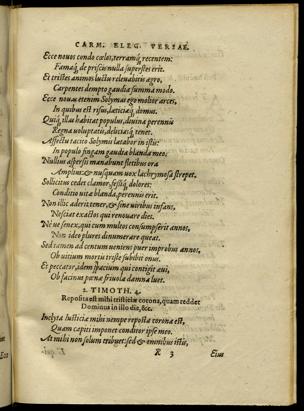 CARM. ELEG. VERSAE.
Ecce nouos condo cœlos, terramq́; recentem:
Famaq́; de priscis nulla superstes erit.
Et tristes animos luctu releuabitis agro,
Carpentes dempto gaudia summa modo.
Ecce nouæ etenim Solymas ego molior arces,
In quibus est risus, deliciæq́; domus.
Quiq́; illas habitat populus, diuina perennis
Regna voluptatis, deliciasq́; tenet.
Affectu tacito Solymis lætabor in istis:
In populo fingam gaudia blanda meo.
Nullius aspersi manabunt fletibus ora
Amplius: & nusquam vox lachrymosa strepet.
Sollicitus cedet clamor, fessiq́; dolores:
Conditio vitæ blanda, perennis erit.
Non illic aderit tener, & sine viribus infans,
Nesciat exactos qui renouare dies.
Nec senex, qui cum multos consumpserit annos,
Non ideo plures dinumerare queat.
Sed tamen ad centum ueniens puer improbus annos,
Ob uitium mortis triste subibit onus.
Et peccator, idem spacium qui contigit æui,
Ob facinus pœna friuola damna luet.
2. TIMOTH. 4.
Reposita est mihi iustitiæ corona, quam reddet
Dominus in illo die, &c.
Inclyta Iusticiæ mihi nempe reposta corona est,
Quam capiti imponet conditor ipse meo.
At mihi non solum tribuet: sed & omnibus istis,
R 3
Eius